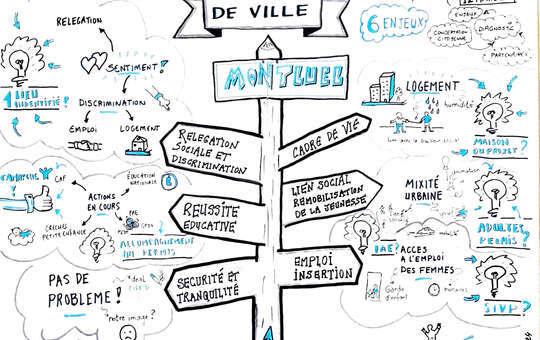 DE VILLE
MONTLUEL
RELEGATION
SOCIALE ET
DISCRIMINATION
REUSSITE
EDUCATIVE
SECURITÉ ET
TRANQUILITÉ
CADRE DE VIE
LIEN SOCIAL
REMOBILISATION
DE LA JEUNESSE
EMPLOI
INSERTION
RELEGATION
SENTIMENT!
DISCRIMINATION
EMPLOI
LOGEMENT
1 LIEU
IDENTIFIÉ?
CAF
ÉDUCATION
NATIONALE
ACTIONS
EN COURS
CRECHES
PETITE ENFANCE
PAS DE
PROBLEME!
notre image?
6 ENJEUX
ENJEUX
DIAGNOSTIC
CONCERTATION
CITOYENNE
PARTENAIRES
LOGEMENT
humidité
MAISON
DU PROJET?
MIXITÉ
URBAINE
mobilité
ADULTES
RELAIS?
IAE?
ACCES
A L'EMPLOI
DES FEMMES
Garde
d'enfant
horaires
SIVP?